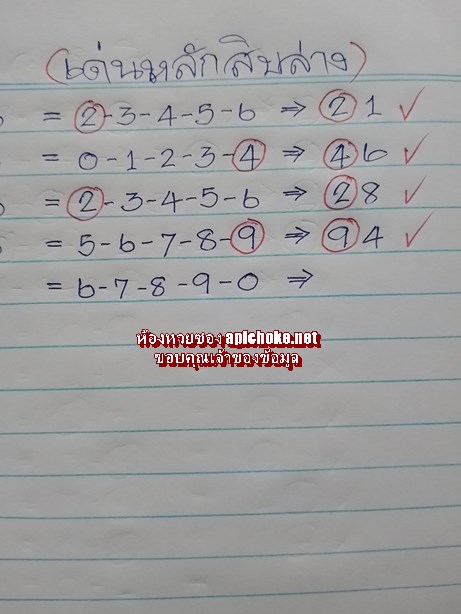 (เด่นหลักสิบล่าง)
= 2-3-4-5-6 ⇒ 21 ✓
= 0-1-2-3-4 ⇒ 46 ✓
= 2-3-4-5-6 ⇒ 28 ✓
= 5-6-7-8-9 ⇒ 94 ✓
= 6-7-8-9-0 ⇒
ห้องหวยซอง apichoke.net
ขอบคุณเจ้าของข้อมูล